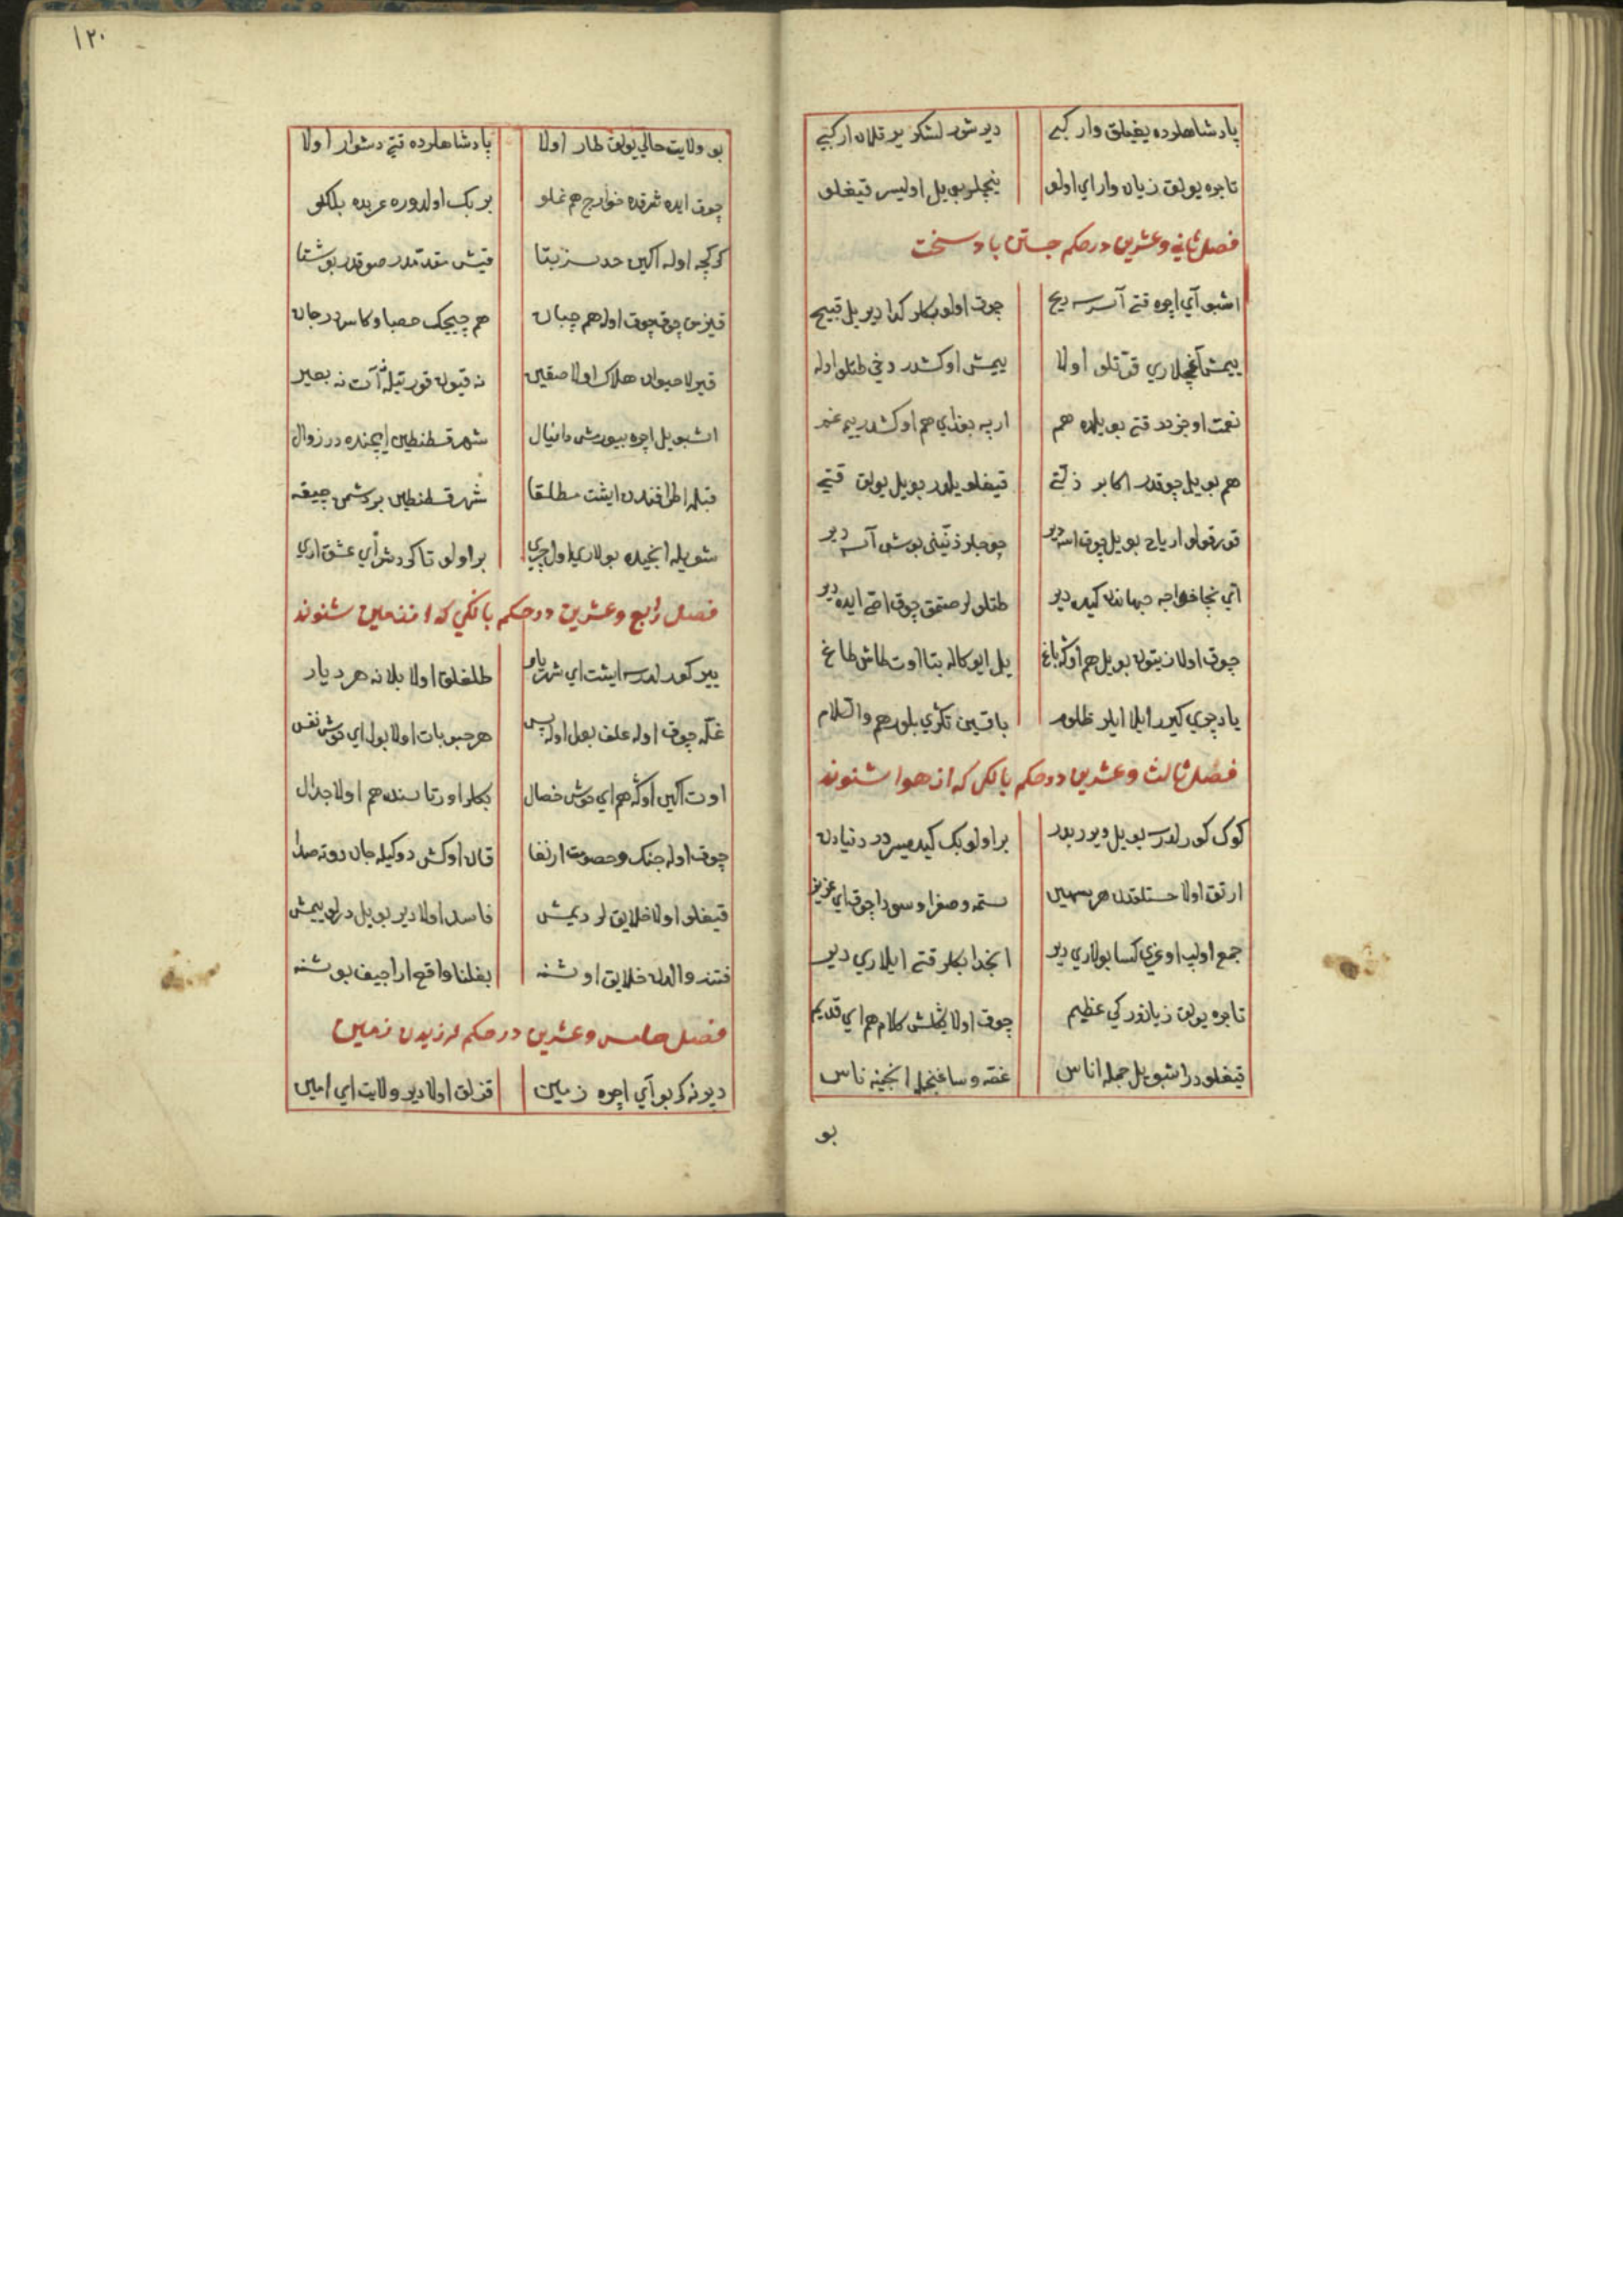 پادشاهلرده یغیلق وار کبی دیر شور لشکر یر قلان ار کبی
تاجره یولق زیان وار ای اولو ینجلر بو ییل اولیسر قیغلو
فصل ثانی و عشرین در حکم جستن باد سخت
اشبو آی اچره قتی آسسه ریح چوق اولو بکلر کدا دیر ییل قبیح
ییمش آغچلاری قوّتلو اولا ییمش اوکشدر دخی طتلو اوله
نعمت اوجزدر قتی بو ییلده هم ارپه بغدای هم اوکشدر ییمه غم
هم بو ییل چوقدر اکابر ذلتی قیغلو یلدر بو ییل یولق قتی
قورقولو اریاح بو ییل چوق اسه دیر
اتی نجا خواجه جهاندن کیده دیر طتلو لر صتمق چوق اقچه ایده دیر
چوق اولا زیتون بو ییل هم اوکه باغ ییل ایو کاله بتا اوت طاش طاغ
یادچری کیرر ایلا ایلر ظلم باقیسن تکری بلور هم والسلام
فصل ثالث و عشرین در حکم بانکی که از هوا شنوند
کوک کورلدسه بو ییل دیر بر بر اولو بک کیدیسردر دنیادن
ارتق اولا خستلقدن هر ستمه و صفرا و سودا چوق ای عزیز
جمع اولب اوغری کسا یولاری دیر انجدا بکلر قتی ایلاری دیر
تاجره یولق زیاندر کی عظیم چوق اولا یکلش کلام هم ای قدیم
قیغلودر اشبو ییل جمله اناس غصه و ساغنجله انجینه ناس
بو
۱۲۰
بو ولایت حالی یولق طار اولا پادشاهلرده قتی دشوار اولا
چوق ایده شرقده خوارج هم غلو بر بک اولدوره عربده بللکلو
کرکچه اوله اکین حدسز بتا قیش مقدّمدر صوقدر بو شتا
قیزمق چوق چوق اوله هم چبان هم چیچک حصبا
قیرلا حیوان هلاک اولا صقین نه قیون قور تیله نه آت نه بعیر
اشبو ییل اچره بیورمش دانیال شهر قسطنطین ایچنده در زوال
قبله اطرافندن ایشت مطلقا شهر قسطنطین بر دشمن چیقه
شویله انجیده بولاری اول چری بر اولو تا کی دشر ای عشق اری
فصل رابع و عشرین در حکم بانکی که از زمین شنوند
ییر کورلدسه ایشت ای شهریار طلغلق اولا بلا نه هر دیار
غله چوق اوله علف بول اوله پس هر حبوبات اولا بول ای خوش نفس
اوت اکین اوکه هم ای خوش خصال بکلر اورتاسنده هم اولا جدال
چوق اوله جنک و خصومت ارتقا قان اوکش دوکیله جان
قیغلو اولا خلایق لر دیمش فاسد اولا دیر بو ییل درلو ییمش
فتنه والدن خلایق اوشنه بغلنا واقع اراجیف بوشنه
فصل خامس و عشرین در حکم لرزیدن زمین
دپرنه کر بو آی اچره زمین قزلق اولا دیر ولایت ای امین